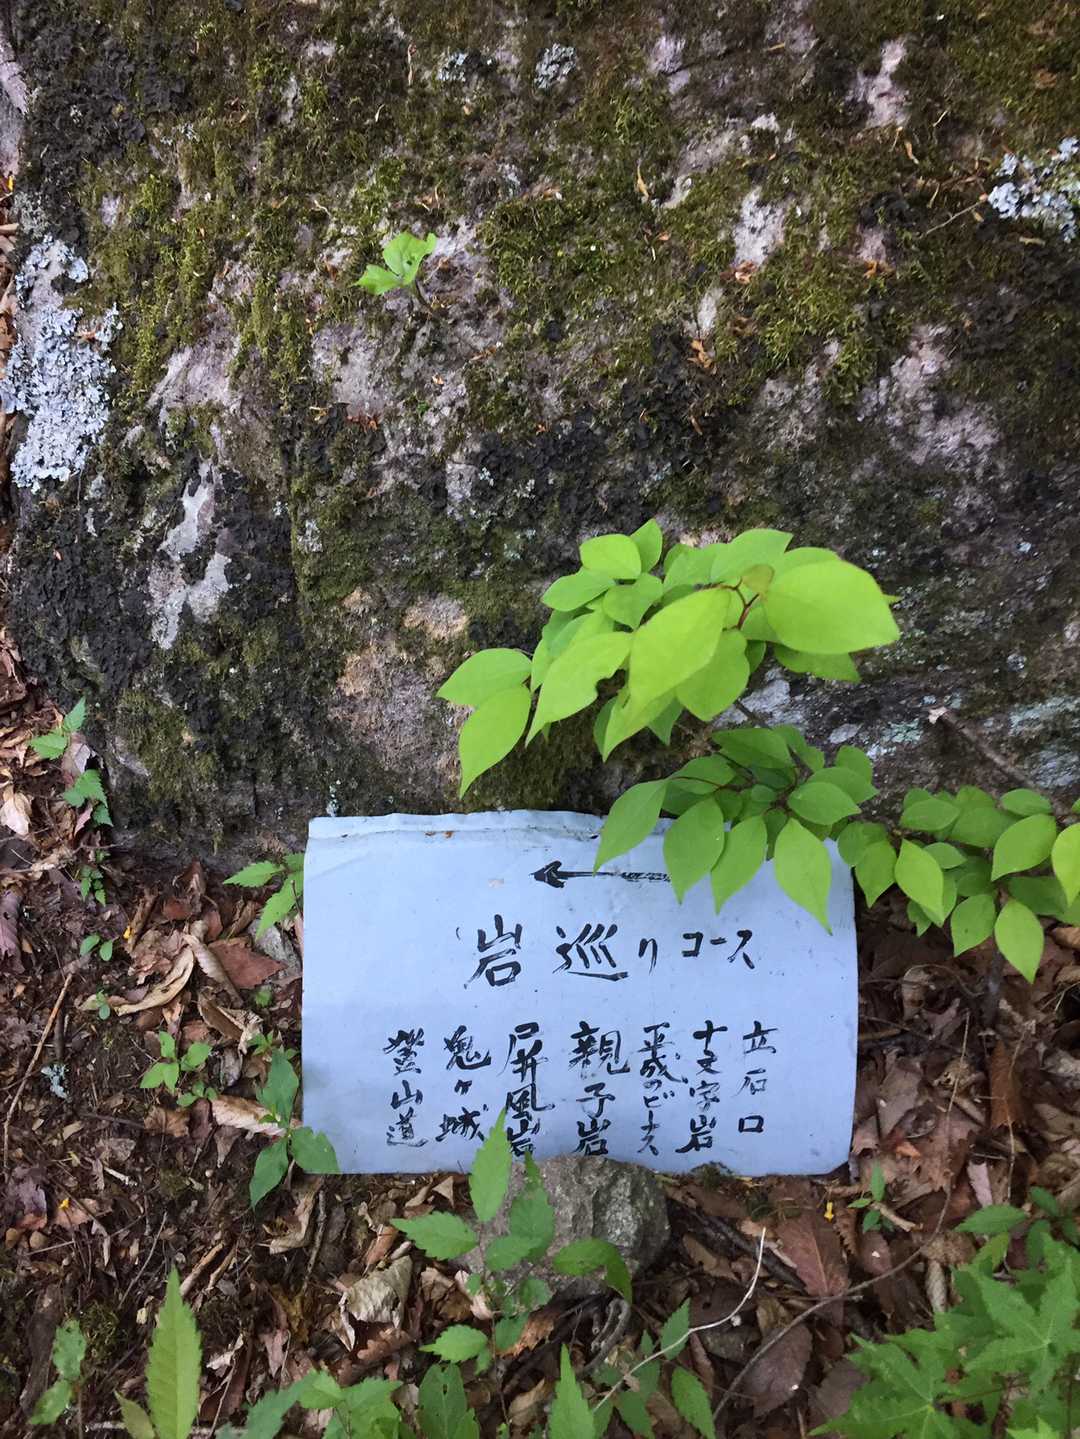 岩巡りコース
立石口
十文字岩
平成のビーナス
親子岩
屏風岩
鬼ヶ城
登山道